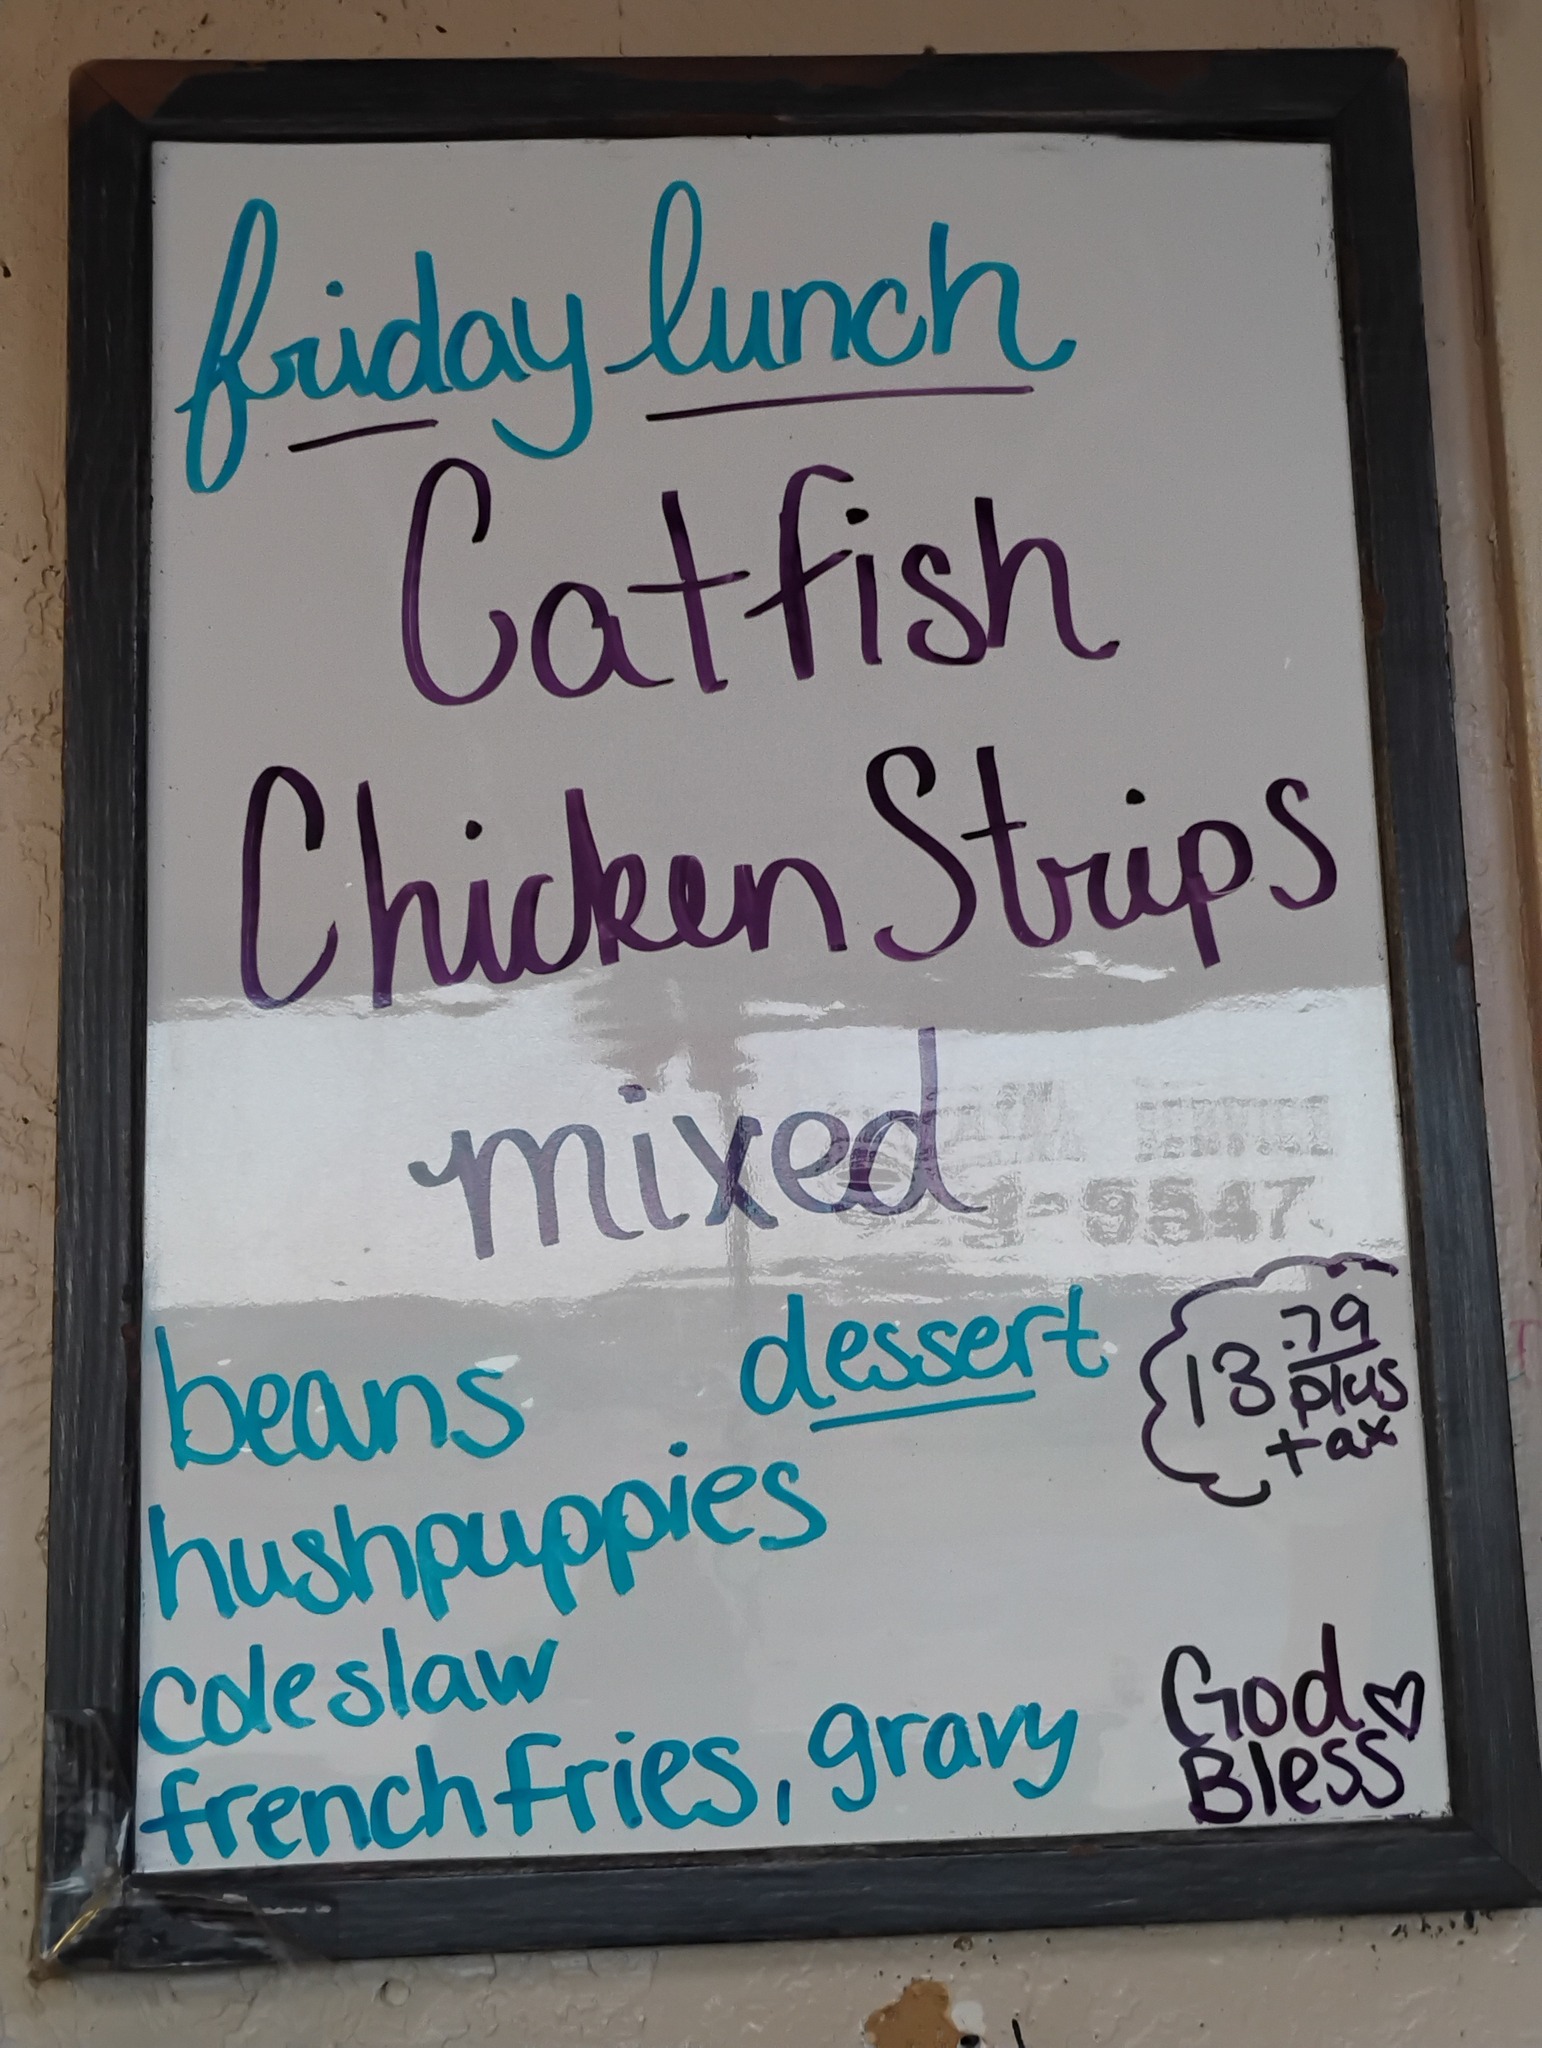 friday lunch
Catfish
Chicken Strips
mixed
beans
dessert
13.79
plus
tax
hushpuppies
coleslaw
french fries, gravy
God
Bless